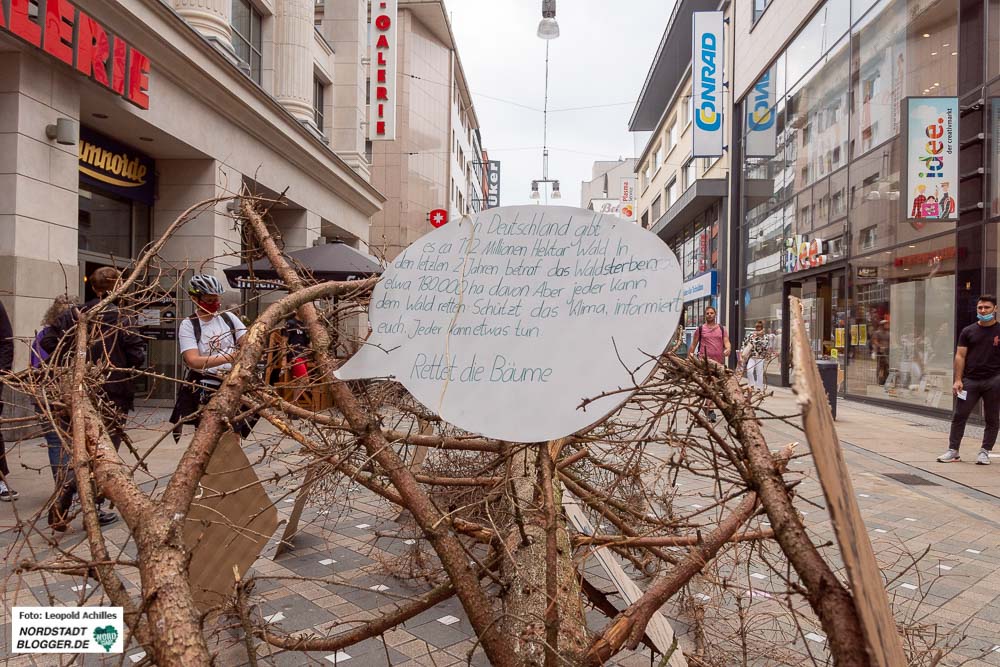 LERIE
GALERIE
amnorde
CONRAD
CONRAD
idee.
der creativmarkt
n Deutschland gibt
es ca 11,2 Millionen Hektar Wald. In
den letzten 2 Jahren betraf das Waldsterben
etwa 180000 ha davon Aber jeder kann
dem Wald retten Schützt das Klima, informiert
euch. Jeder kann etwas tun.
Rettet die Bäume
Foto: Leopold Achilles
NORDSTADT
BLOGGER.DE
NORD
STADT